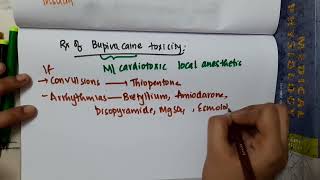 Rx of Bupivacaine toxicity:
M/ cardiotoxic local anesthetic
If
→ Convulsions → Thiopentone
- Arrhythmias — Bretylium, Amiodarone,
Disopyramide, MgSO₄, Esmolol
MEDICAL
PHYSIOLOGY